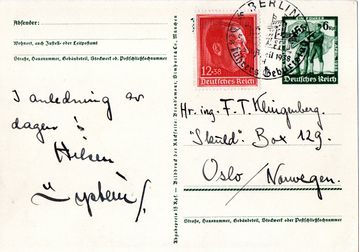 Absender:
Wohnort, auch Zustell- oder Leitpostamt
Straße, Hausnummer, Gebäudeteil, Stockwerk od. Postschließfachnummer
I anledning av
dagen's
Hilsen
BERLIN
1938
12+38
Deutsches Reich
6
Deutsches Reich
Hr. ing. F. T. Klingenberg.
"Skuld". Box 129.
Oslo / Norwegen.
Straße, Hausnummer, Gebäudeteil, Stockwerk oder Postschließfachnummer